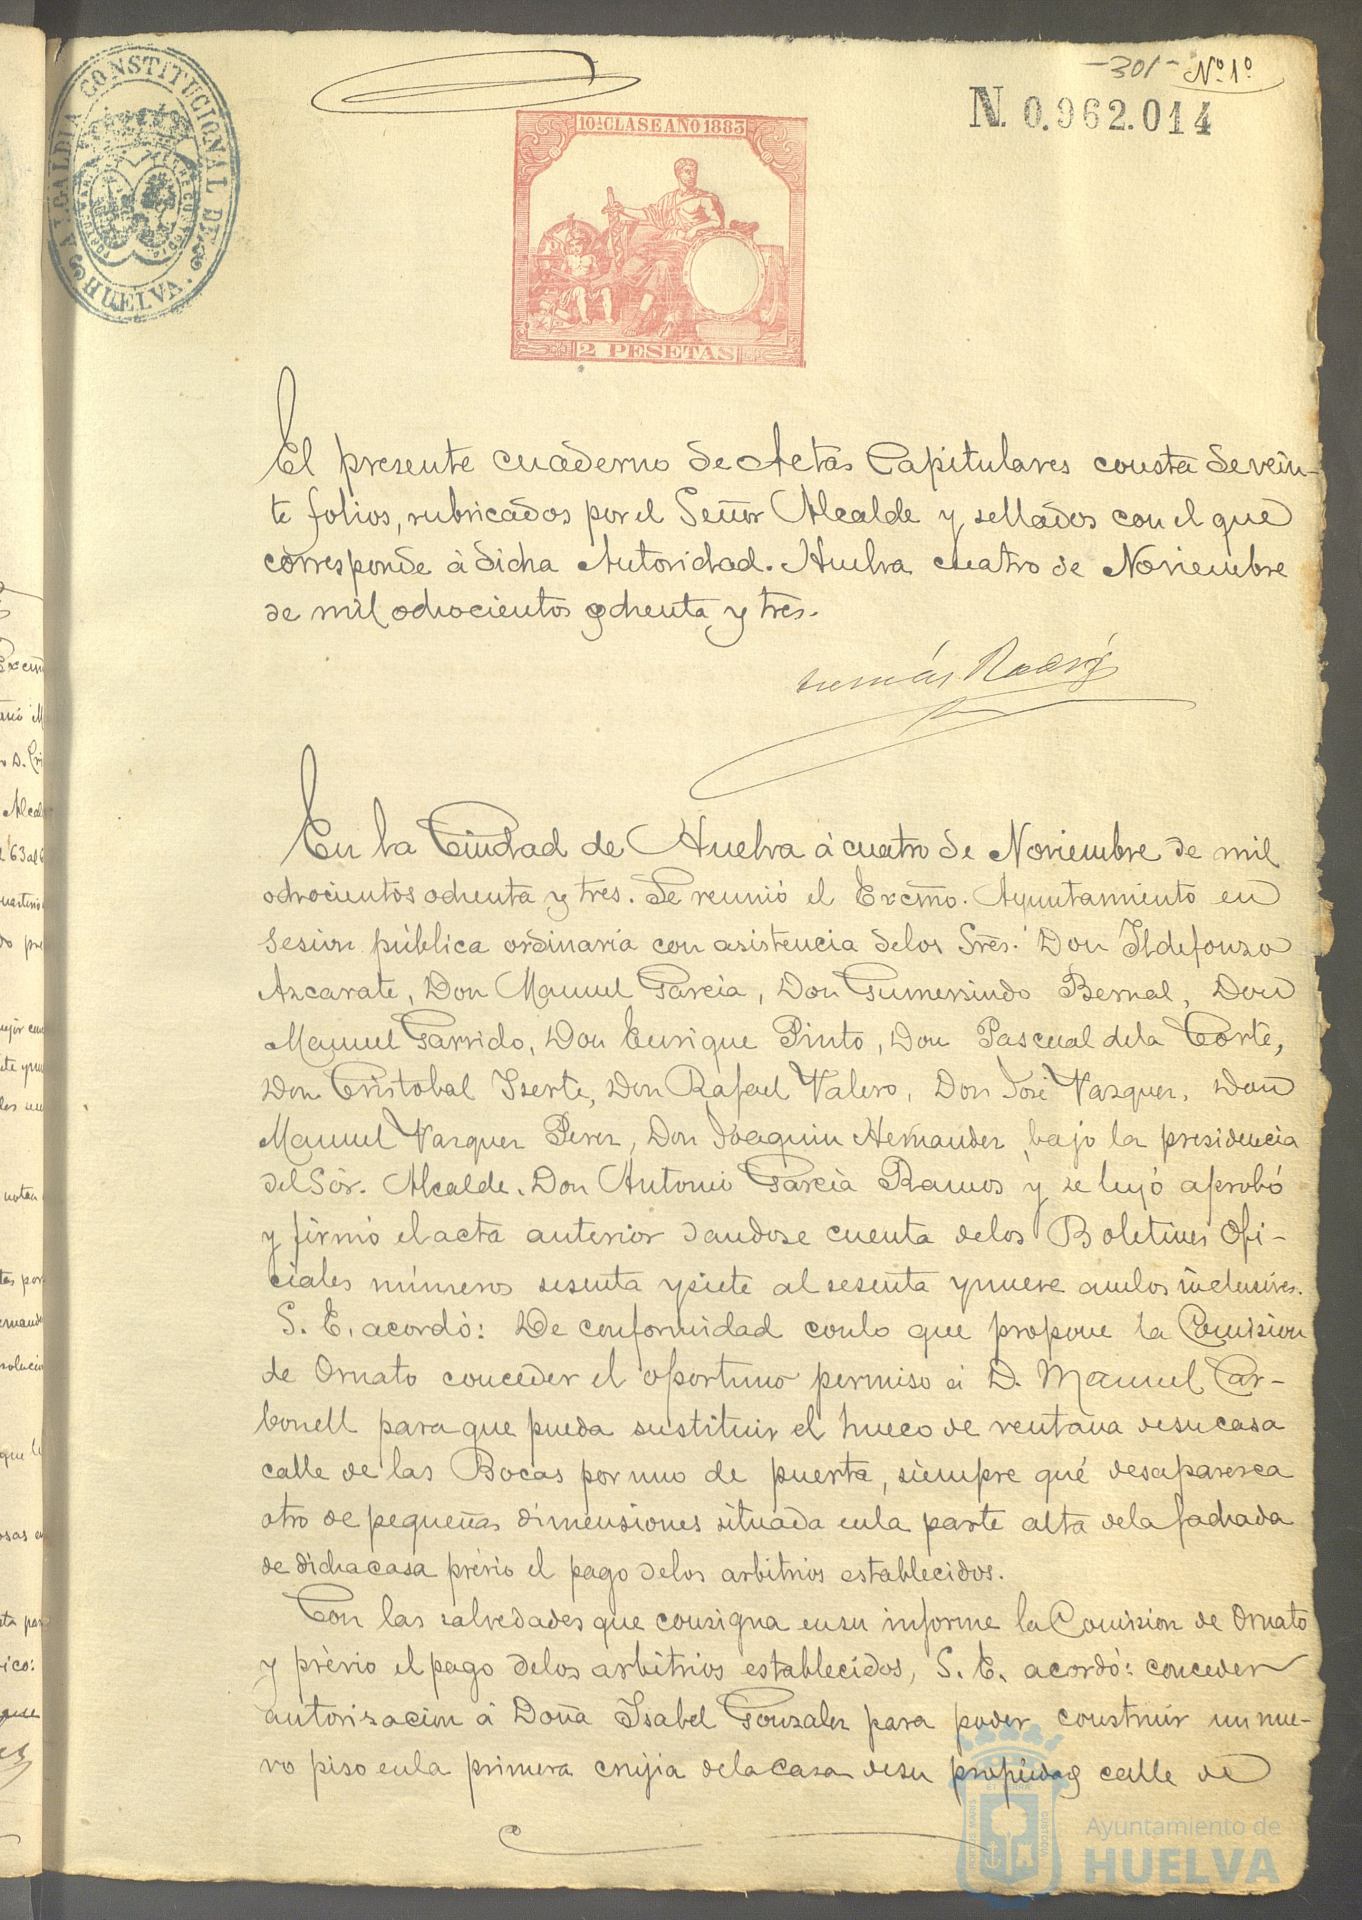 -301- Nº 1º
N. 0.962.014
ALCALDIA CONSTITUCIONAL DE HUELVA.
10ª CLASE AÑO 1883
2 PESETAS
El presente cuaderno de Actas Capitulares consta de vein-
te folios, rubricados por el Señor Alcalde y sellados con el que
corresponde á dicha Autoridad. Huelva cuatro de Noviembre
de mil ochocientos ochenta y tres.
En la Ciudad de Huelva á cuatro de Noviembre de mil
ochocientos ochenta y tres. Se reunió el Excmo. Ayuntamiento en
sesion pública ordinaria con asistencia de los Sres. Don Ildefonso
Azcarate, Don Manuel Garcia, Don Gumersindo Bernal, Don
Manuel Garrido, Don Enrique Pinto, Don Pascual de la Corte,
Don Cristobal Iserte, Don Rafael Valero, Don José Vazquez, Don
Manuel Vazquez Perez, Don Joaquin Hernandez, bajo la presidencia
del Sór. Alcalde, Don Antonio Garcia Ramos y se leyó aprobó
y firmó el acta anterior dandose cuenta de los Boletines Ofi-
ciales números sesenta y siete al sesenta y nueve ambos inclusives.
S. E. acordó: De conformidad con lo que propone la Comision
de Ornato conceder el oportuno permiso á D. Manuel Car-
bonell para que pueda sustituir el hueco de ventana de su casa
calle de las Bocas por uno de puerta, siempre qué desaparesca
otro de pequeñas dimensiones situada en la parte alta de la fachada
de dicha casa prévio el pago de los arbitrios establecidos.
Con las salvedades que consigna en su informe la Comision de Ornato
y prévio el pago de los arbitrios establecidos, S. E. acordó: conceder
autorizacion á Doña Isabel Gonzalez para poder construir un nue-
vo piso en la primera crujia de la casa de su propiedad calle de
Ayuntamiento de
HUELVA